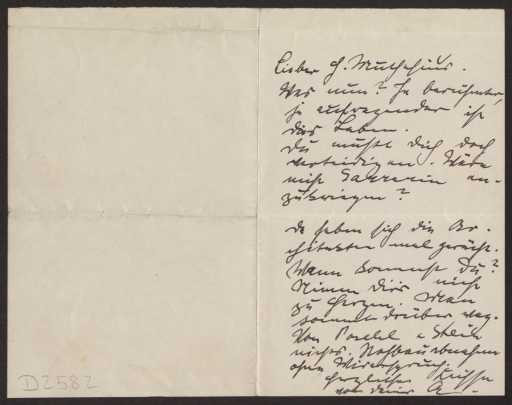 Lieber H. Muthesius.
Was nun? Je berühmter,
je aufregender ist
das Leben.
Du mußt Dich doch
verteidigen. Wäre
nicht Harrerin an-
zukriegen?
da haben sich die Ar-
chitekten mal gerächt.
Wann kommst Du?
Nimm dirs nicht
zu Herzen. Man
kommt drüber weg.
Von Poelzel u Stein
nichts. Rohbauabnahme
ohne Widerspruch.
herzliche Grüsse
von deiner A.
D2582